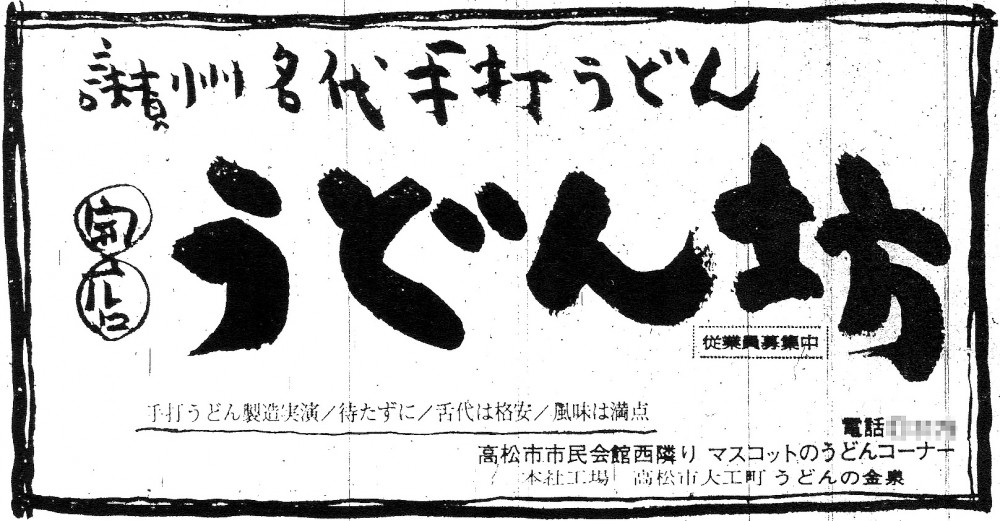 讃州名代手打うどん
うどん坊
従業員募集中
手打うどん製造実演／待たずに／舌代は格安／風味は満点
電話
高松市市民会館西隣り マスコットのうどんコーナー
本社工場 高松市大工町 うどんの金泉